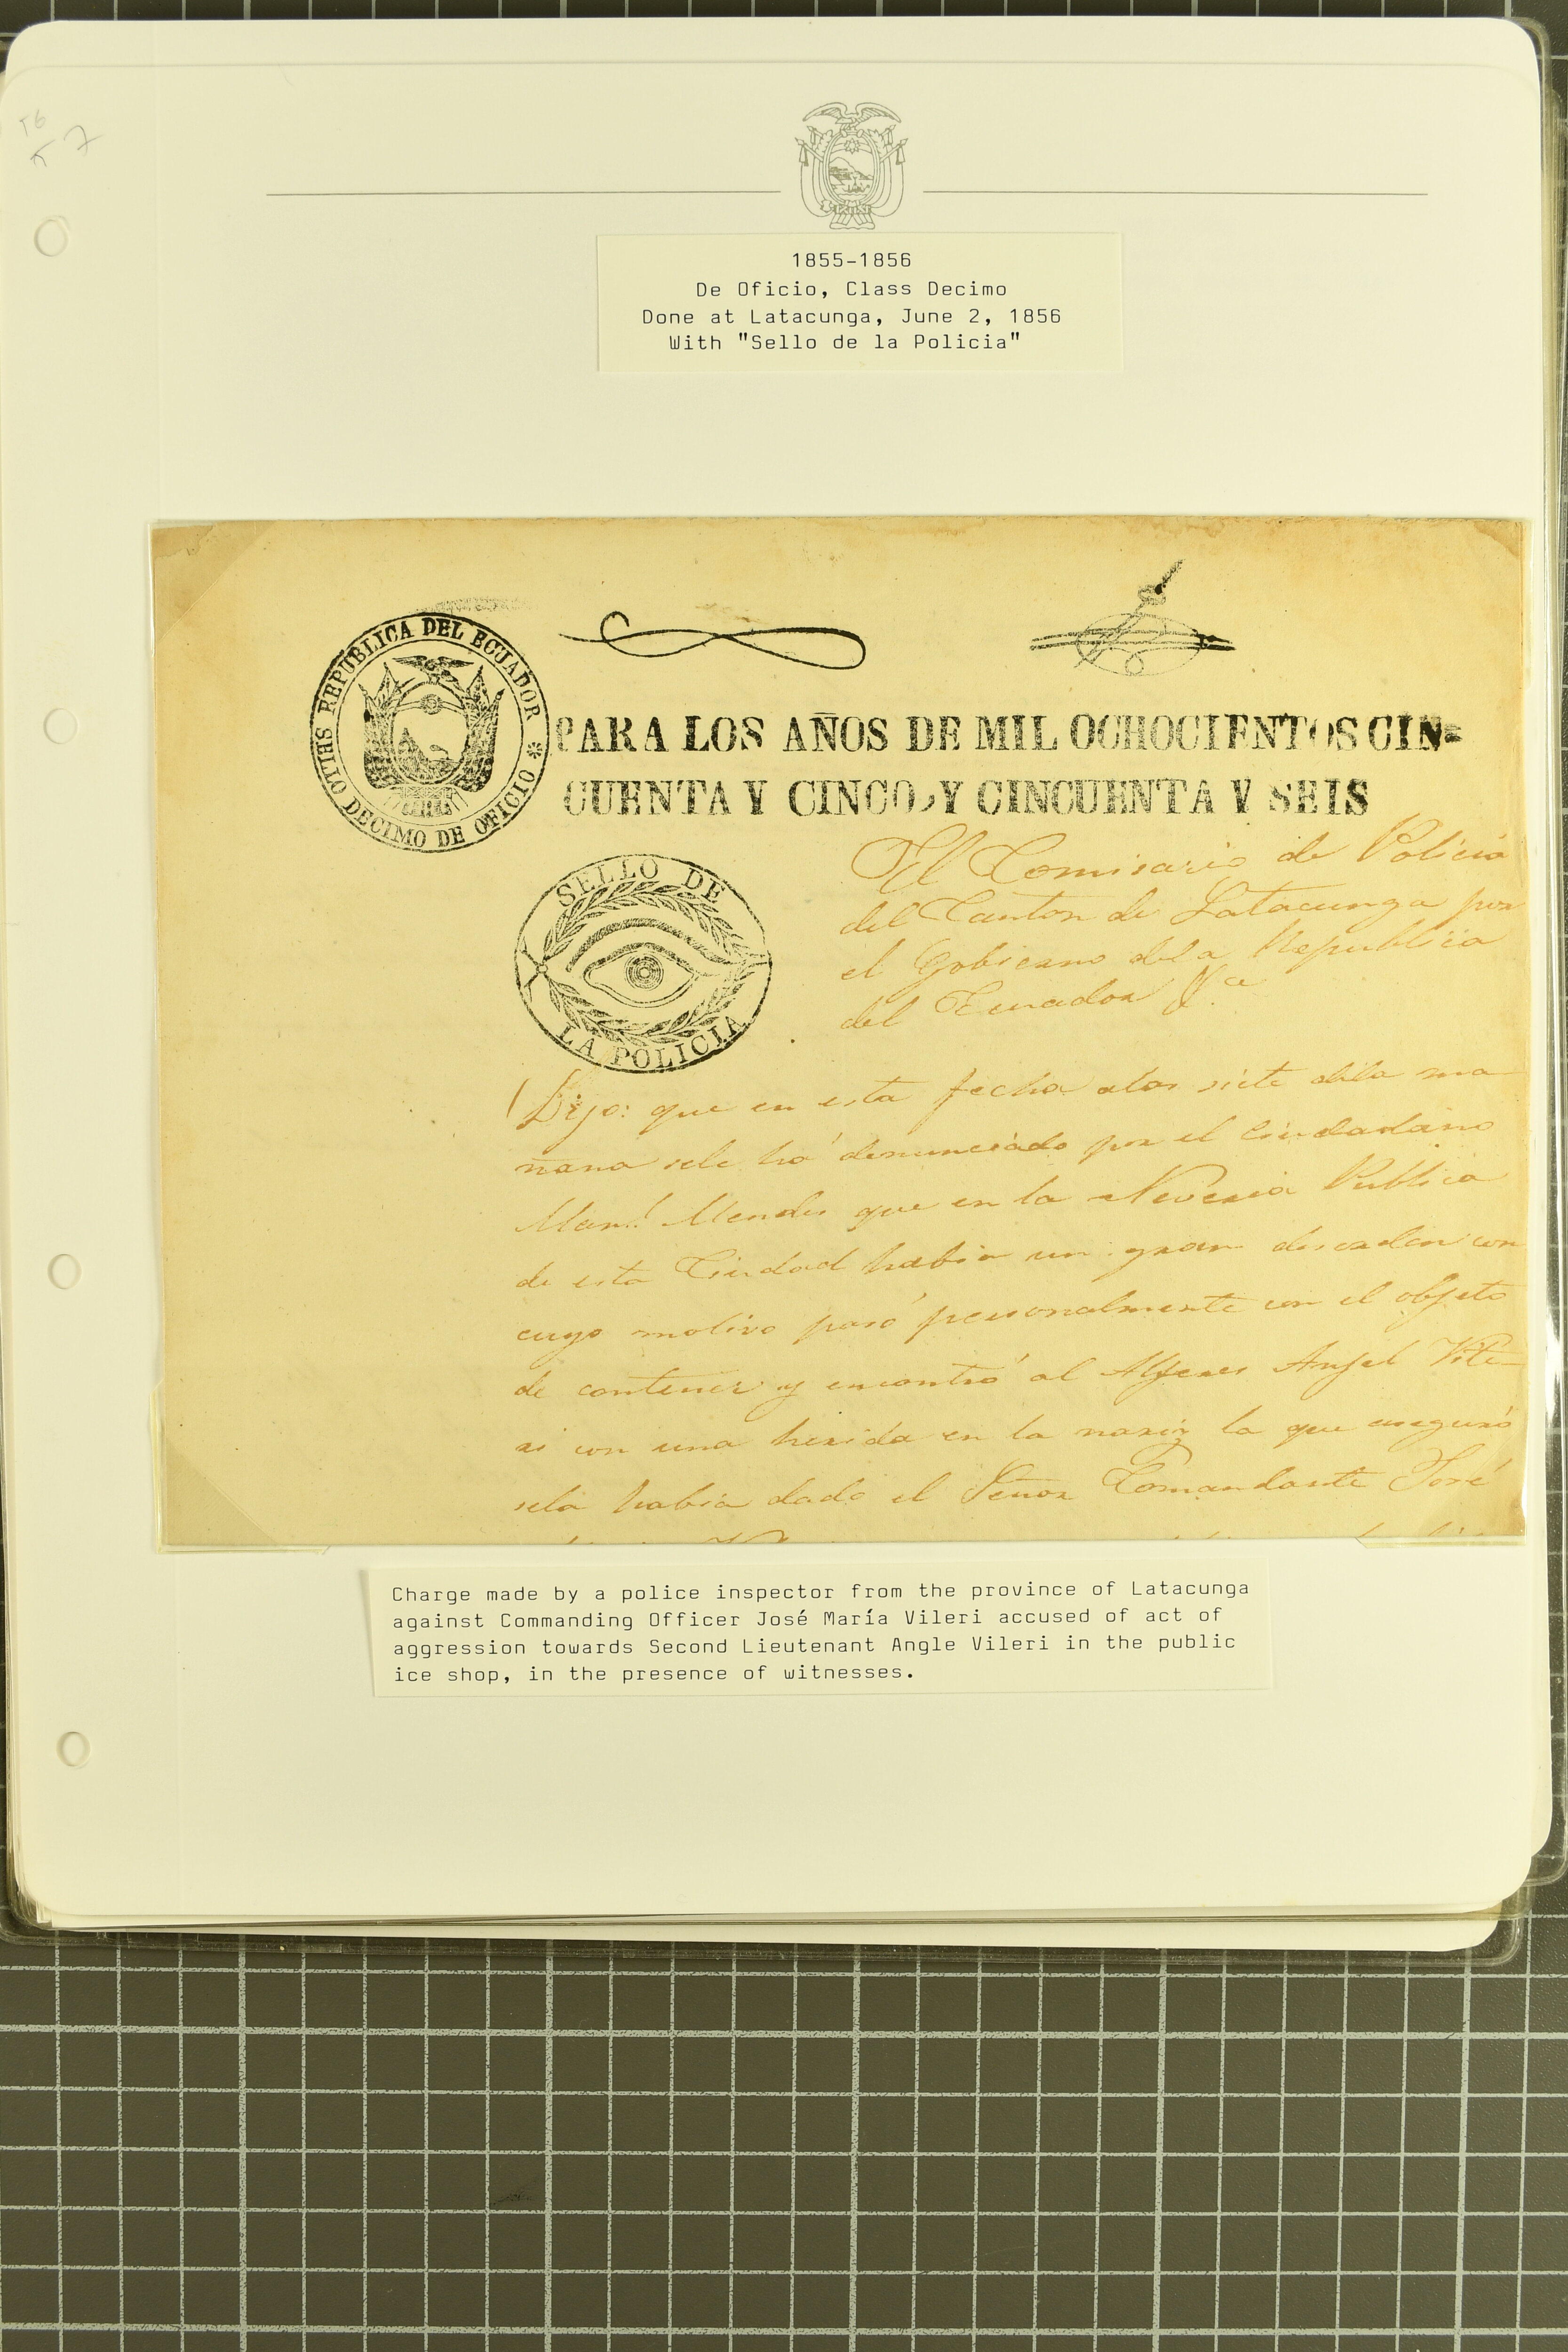 1855-1856
De Oficio, Class Decimo
Done at Latacunga, June 2, 1856
With "Sello de la Policia"
REPUBLICA DEL ECUADOR
SELLO DECIMO DE OFICIO
PARA LOS AÑOS DE MIL OCHOCIENTOS CIN=
CUENTA Y CINCO, Y CINCUENTA Y SEIS
SELLO DE
LA POLICIA
El Comisario de Policia
del Canton de Latacunga por
el Gobierno dela Republica
del Ecuador &.ª
Dijo: que en esta fecha alas siete dela ma
ñana sele há denunciado por el Ciudadano
Man.l Mendes que en la Neveria Publica
de esta Ciudad habia un gran desorden con
cuyo motivo pasó personalmente con el objeto
de contener y encontró al Alferes Anjel Vile-
ri con una herida en la nariz la que aseguró
sela habia dado el Señor Comandante José
Charge made by a police inspector from the province of Latacunga
against Commanding Officer José María Vileri accused of act of
aggression towards Second Lieutenant Angle Vileri in the public
ice shop, in the presence of witnesses.